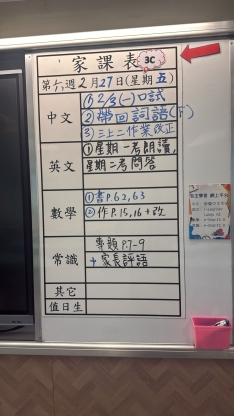 家課表 3C
第六週 2月27日(星期五)
中文
① 2/3(一)口試
② 帶回詞語(下)
③ 三上二作業改正
英文
① 星期一考朗讀,
星期二考問答
數學
① 書P.62,63
② 作P.15,16+改
常識
專題P.7-9
+家長評語
其它
值日生